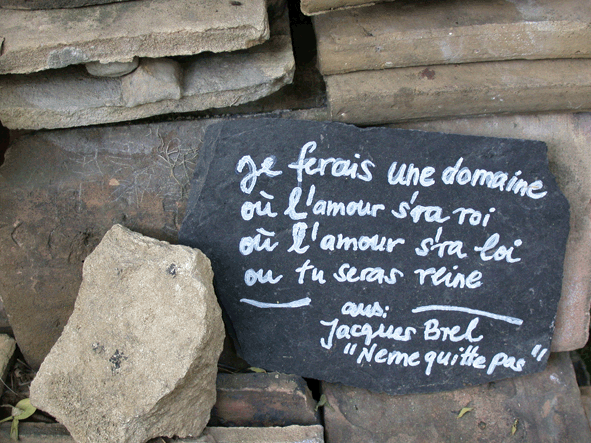 Je ferais une domaine
où l'amour s'ra roi
où l'amour s'ra loi
ou tu seras reine
aus:
Jacques Brel
"Ne me quitte pas"